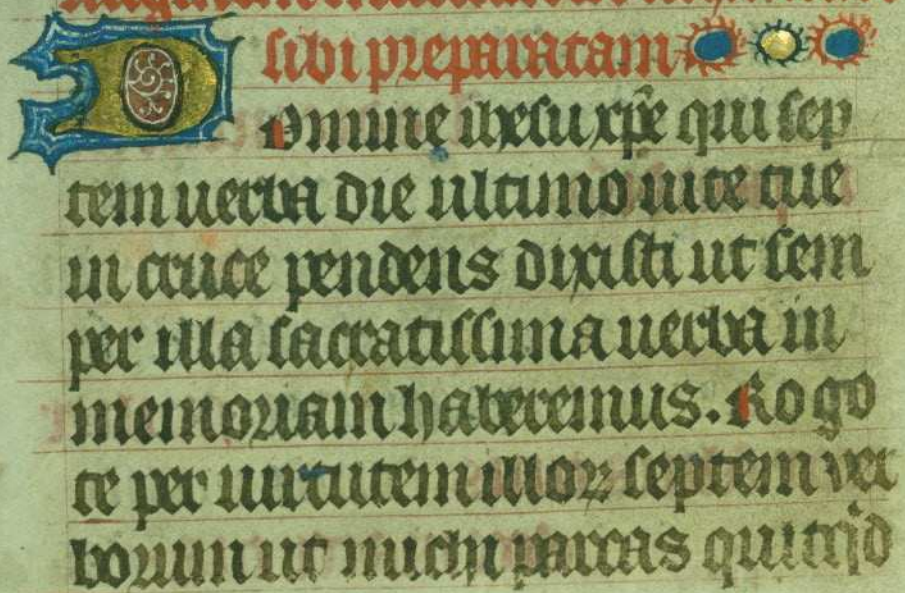 sibi preparatam
Domine ihesu xp̄e qui sep
tem uerba die ultimo uite tue
in cruce pendens dixisti ut sem
per illa sacratissima uerba in
memoriam haberemus. Rogo
te per uirtutem illoꝝ septem ver
borum ut michi parcas quitq̇d